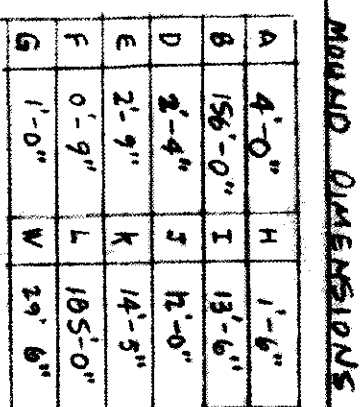 MOUND DIMENSIONS
A 4'-0" H 1'-6"
B 156'-0" I 13'-6"
D 2'-4" J 12'-0"
E 2'-9" K 14'-5"
F 0'-9" L 185'-0"
G 1'-0" W 29' 6"